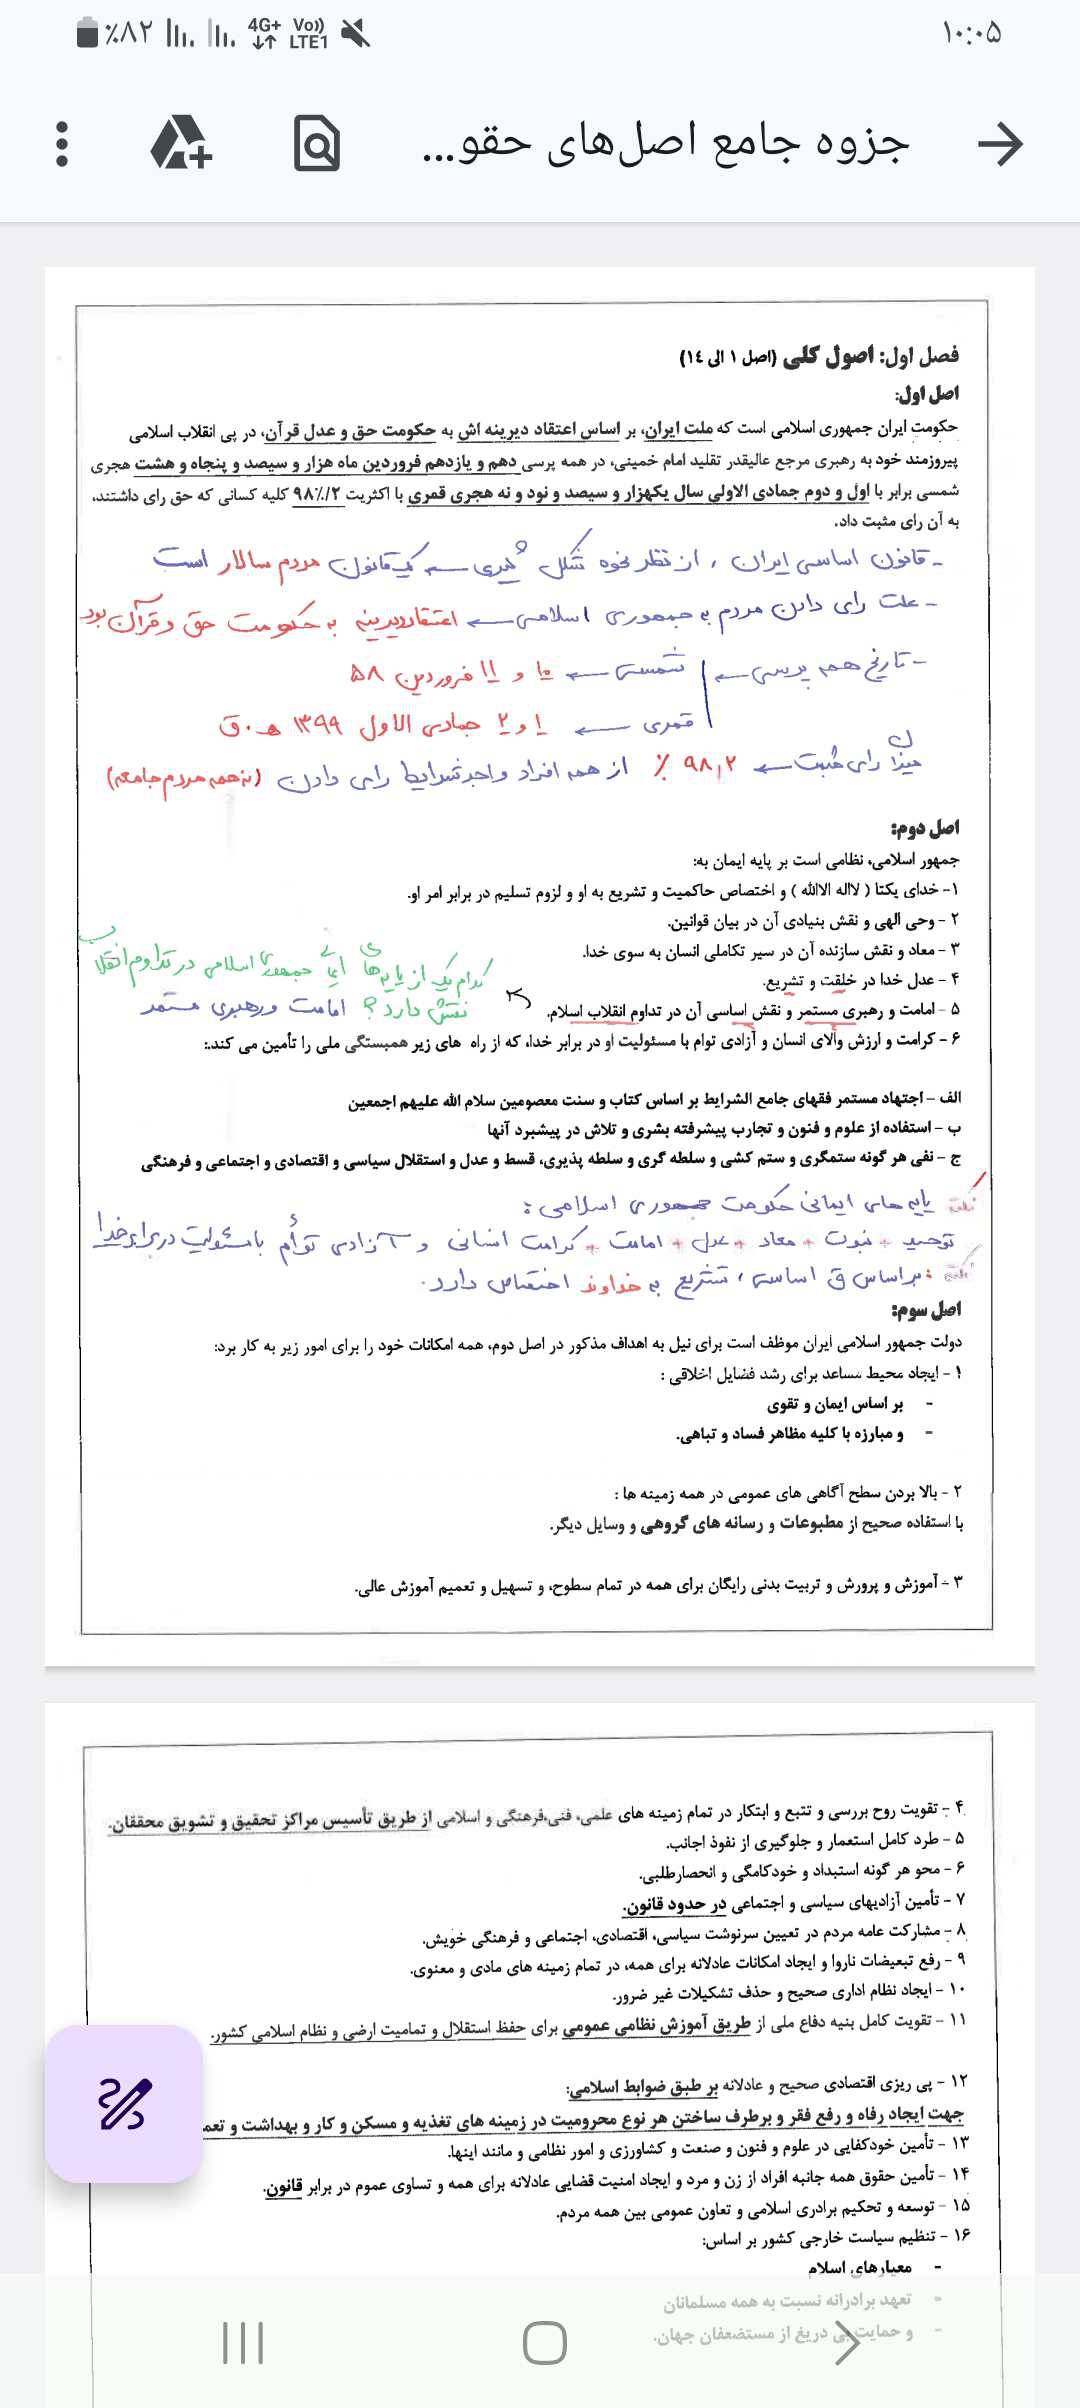 ۱۰:۰۵
4G+ Vo)) LTE1 ٪۸۲
جزوه جامع اصل‌های حقو...
فصل اول: اصول کلی (اصل ۱ الی ۱۴)
اصل اول:
حکومت ایران جمهوری اسلامی است که ملت ایران، بر اساس اعتقاد دیرینه اش به حکومت حق و عدل قرآن، در پی انقلاب اسلامی
پیروزمند خود به رهبری مرجع عالیقدر تقلید امام خمینی، در همه پرسی دهم و یازدهم فروردین ماه هزار و سیصد و پنجاه و هشت هجری
شمسی برابر با اول و دوم جمادی الاولی سال یکهزار و سیصد و نود و نه هجری قمری با اکثریت ۹۸٪/۲ کلیه کسانی که حق رای داشتند،
به آن رای مثبت داد.
- قانون اساسی ایران ، از نظر نحوه شکل گیری ← یک قانون مردم سالار است
- علت رای دادن مردم به جمهوری اسلامی ← اعتقاد دیرینه به حکومت حق و قرآن بود
- تاریخ همه پرسی ← شمسی ← ۱۰ و ۱۱ فروردین ۵۸
قمری ← ۱ و ۲ جمادی الاول ۱۳۹۹ ه.ق
میزان رای مثبت ← ۹۸,۲ ٪ از همه افراد واجد شرایط رای دادن (نه همه مردم جامعه)
اصل دوم:
جمهور اسلامی، نظامی است بر پایه ایمان به:
۱- خدای یکتا ( لااله الاالله ) و اختصاص حاکمیت و تشریع به او و لزوم تسلیم در برابر امر او.
۲ - وحی الهی و نقش بنیادی آن در بیان قوانین.
۳ - معاد و نقش سازنده آن در سیر تکاملی انسان به سوی خدا.
۴ - عدل خدا در خلقت و تشریع.
کدام یک از پایه های ایمانی جمهوری اسلامی در تداوم انقلاب
۵ - امامت و رهبری مستمر و نقش اساسی آن در تداوم انقلاب اسلام.
نقش دارد؟ امامت و رهبری مستمر
۶ - کرامت و ارزش والای انسان و آزادی توام با مسئولیت او در برابر خدا، که از راه های زیر همبستگی ملی را تأمین می کند.:
الف - اجتهاد مستمر فقهای جامع الشرایط بر اساس کتاب و سنت معصومین سلام الله علیهم اجمعین
ب - استفاده از علوم و فنون و تجارب پیشرفته بشری و تلاش در پیشبرد آنها
ج - نفی هر گونه ستمگری و ستم کشی و سلطه گری و سلطه پذیری، قسط و عدل و استقلال سیاسی و اقتصادی و اجتماعی و فرهنگی
نکته پایه های ایمانی حکومت جمهوری اسلامی :
توحید + نبوت + معاد + عدل + امامت + کرامت انسانی و آزادی توأم با مسئولیت در برابر خدا
نکته : بر اساس ق اساسی ، تشریع به خداوند اختصاص دارد.
اصل سوم:
دولت جمهور اسلامی ایران موظف است برای نیل به اهداف مذکور در اصل دوم، همه امکانات خود را برای امور زیر به کار برد:
۱ - ایجاد محیط مساعد برای رشد فضایل اخلاقی :
- بر اساس ایمان و تقوی
- و مبارزه با کلیه مظاهر فساد و تباهی.
۲ - بالا بردن سطح آگاهی های عمومی در همه زمینه ها :
با استفاده صحیح از مطبوعات و رسانه های گروهی و وسایل دیگر.
۳ - آموزش و پرورش و تربیت بدنی رایگان برای همه در تمام سطوح، و تسهیل و تعمیم آموزش عالی.
۴ - تقویت روح بررسی و تتبع و ابتکار در تمام زمینه های علمی، فنی،فرهنگی و اسلامی از طریق تأسیس مراکز تحقیق و تشویق محققان.
۵ - طرد کامل استعمار و جلوگیری از نفوذ اجانب.
۶ - محو هر گونه استبداد و خودکامگی و انحصارطلبی.
۷ - تأمین آزادیهای سیاسی و اجتماعی در حدود قانون.
۸ - مشارکت عامه مردم در تعیین سرنوشت سیاسی، اقتصادی، اجتماعی و فرهنگی خویش.
۹ - رفع تبعیضات ناروا و ایجاد امکانات عادلانه برای همه، در تمام زمینه های مادی و معنوی.
۱۰ - ایجاد نظام اداری صحیح و حذف تشکیلات غیر ضرور.
۱۱ - تقویت کامل بنیه دفاع ملی از طریق آموزش نظامی عمومی برای حفظ استقلال و تمامیت ارضی و نظام اسلامی کشور.
۱۲ - پی ریزی اقتصادی صحیح و عادلانه بر طبق ضوابط اسلامی:
جهت ایجاد رفاه و رفع فقر و برطرف ساختن هر نوع محرومیت در زمینه های تغذیه و مسکن و کار و بهداشت و تعم
۱۳ - تأمین خودکفایی در علوم و فنون و صنعت و کشاورزی و امور نظامی و مانند اینها.
۱۴ - تأمین حقوق همه جانبه افراد از زن و مرد و ایجاد امنیت قضایی عادلانه برای همه و تساوی عموم در برابر قانون.
۱۵ - توسعه و تحکیم برادری اسلامی و تعاون عمومی بین همه مردم.
۱۶ - تنظیم سیاست خارجی کشور بر اساس:
- معیارهای اسلام
- تعهد برادرانه نسبت به همه مسلمانان
- و حمایت بی دریغ از مستضعفان جهان.